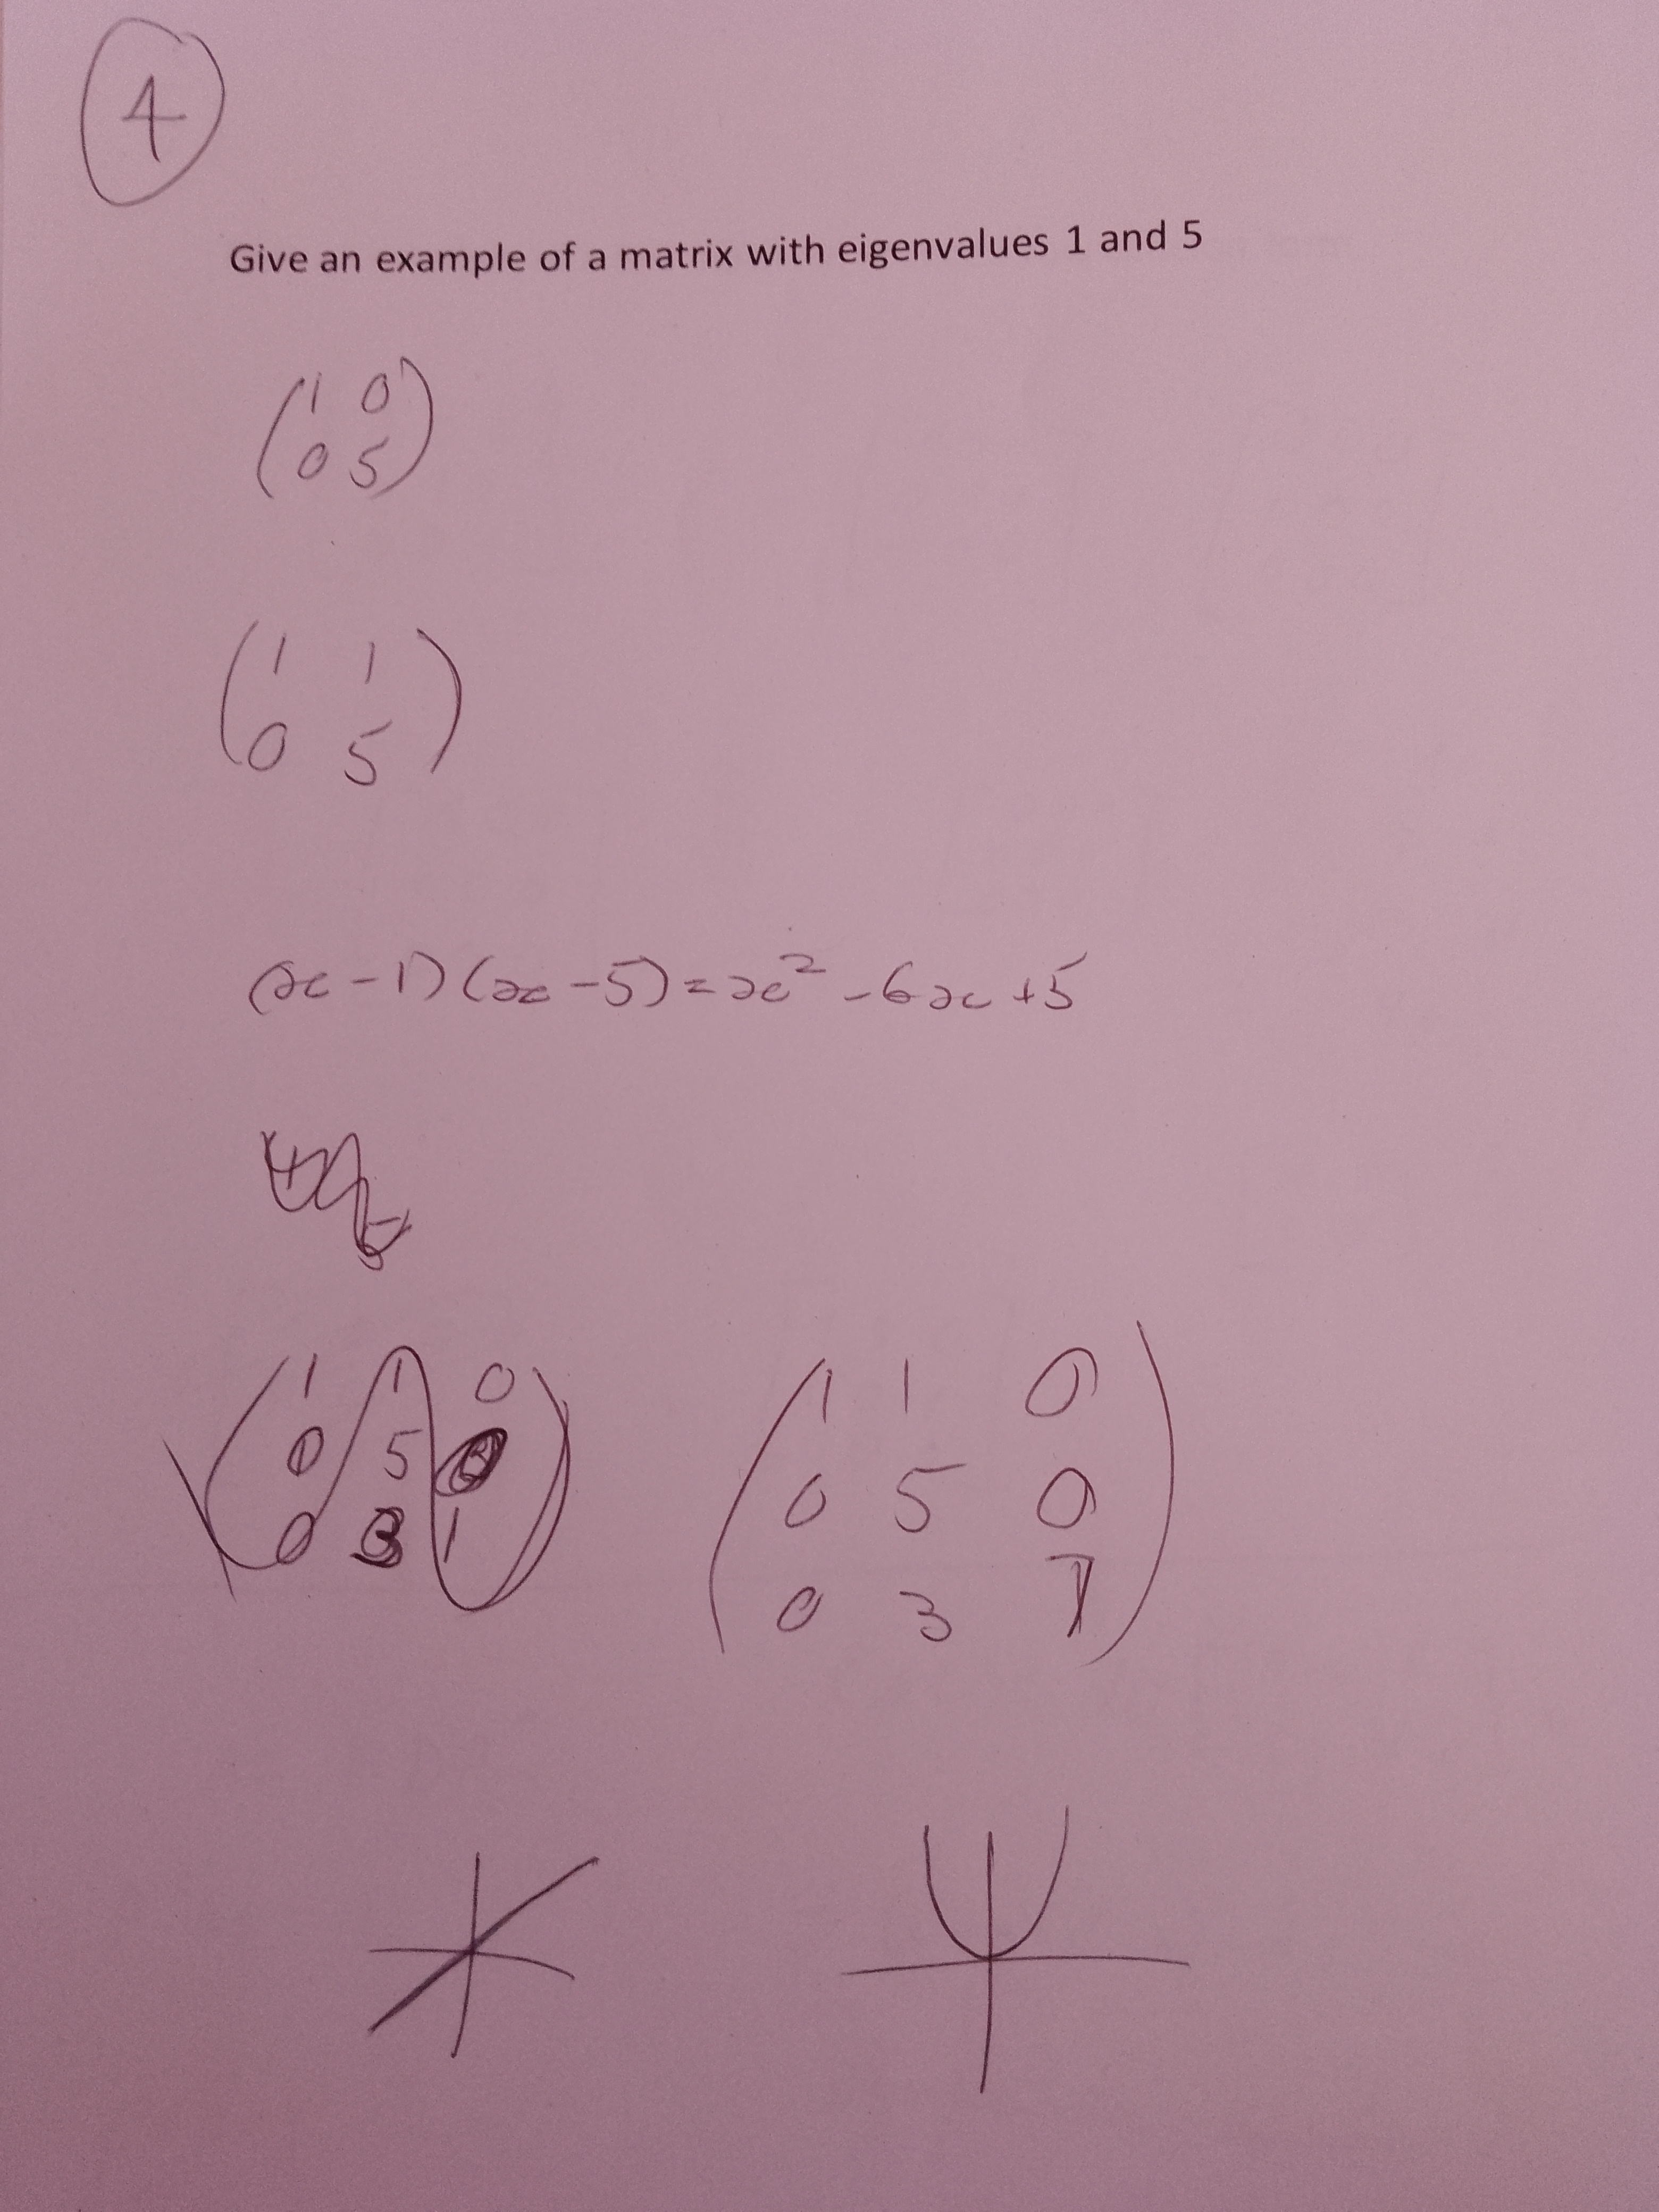 4
Give an example of a matrix with eigenvalues 1 and 5
( 1 0
0 5 )
( 1 1
0 5 )
(x - 1) (x - 5) = x² - 6x + 5
( 1 1 0
0 5
0 3 1 )
( 1 1 0
0 5 0
0 3 )